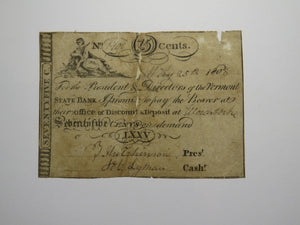 SEVENTYFIVE C.
No. 75 Cents.
May 25th 180
For the President & Directors of the Vermont
STATE BANK I promise to pay the Bearer at
their Office of Discount & Deposit at Woodstock
Seventyfive Cents on demand
LXXV
Presd.
Lyman Cashr.